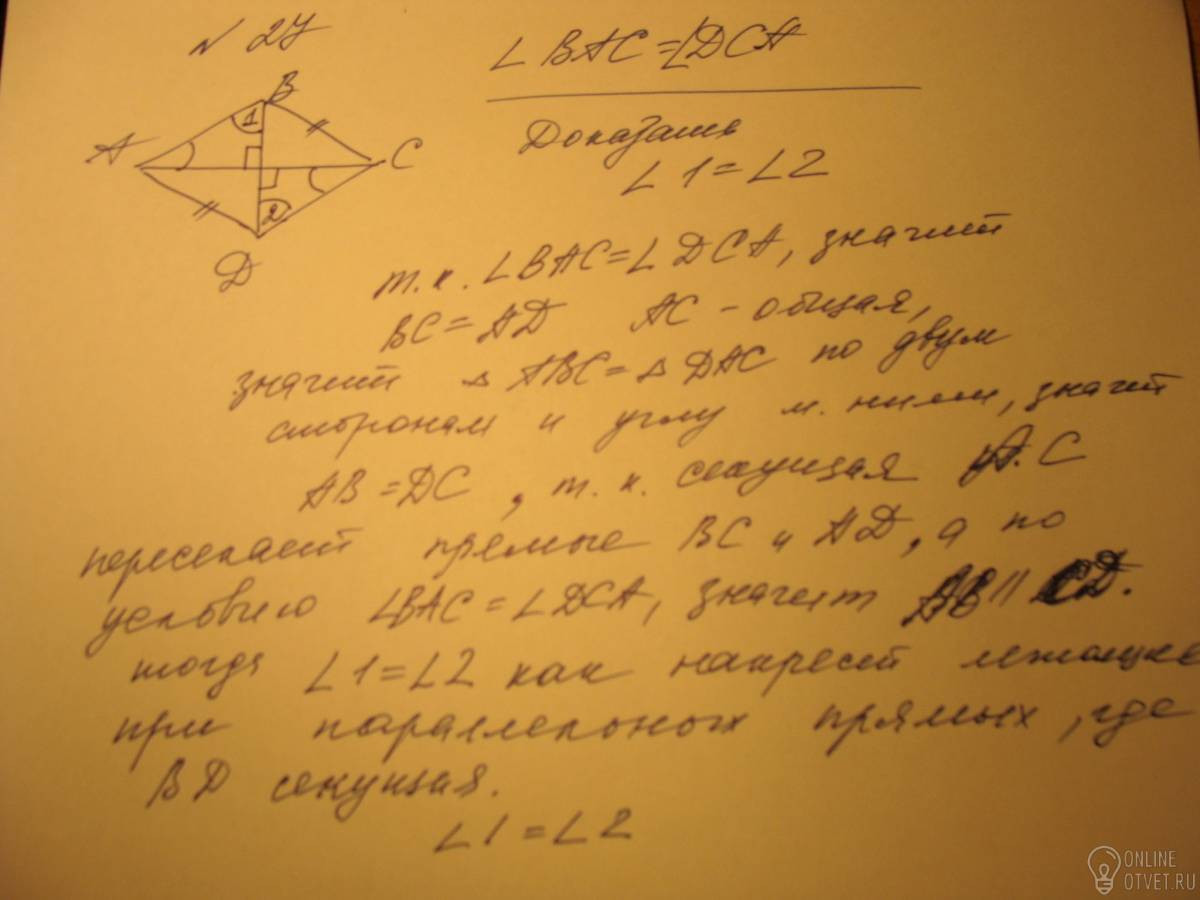 N 27
∠ BAC = ∠DCA
B
1
A
C
2
D
Доказать
∠ 1 = ∠ 2
т.к. ∠ BAC = ∠ DCA, значит
BC = AD AC - общая,
значит △ ABC = △ DAC по двум
сторонам и углу м. ними, значит
AB = DC, т.к. секущая A.C
пересекает прямые BC и AD, а по
условию ∠BAC = ∠DCA, значит AB || CD.
тогда ∠1 = ∠2 как накрест лежащие
при параллельных прямых, где
BD секущая.
∠1 = ∠2
ONLINE
OTVET.RU